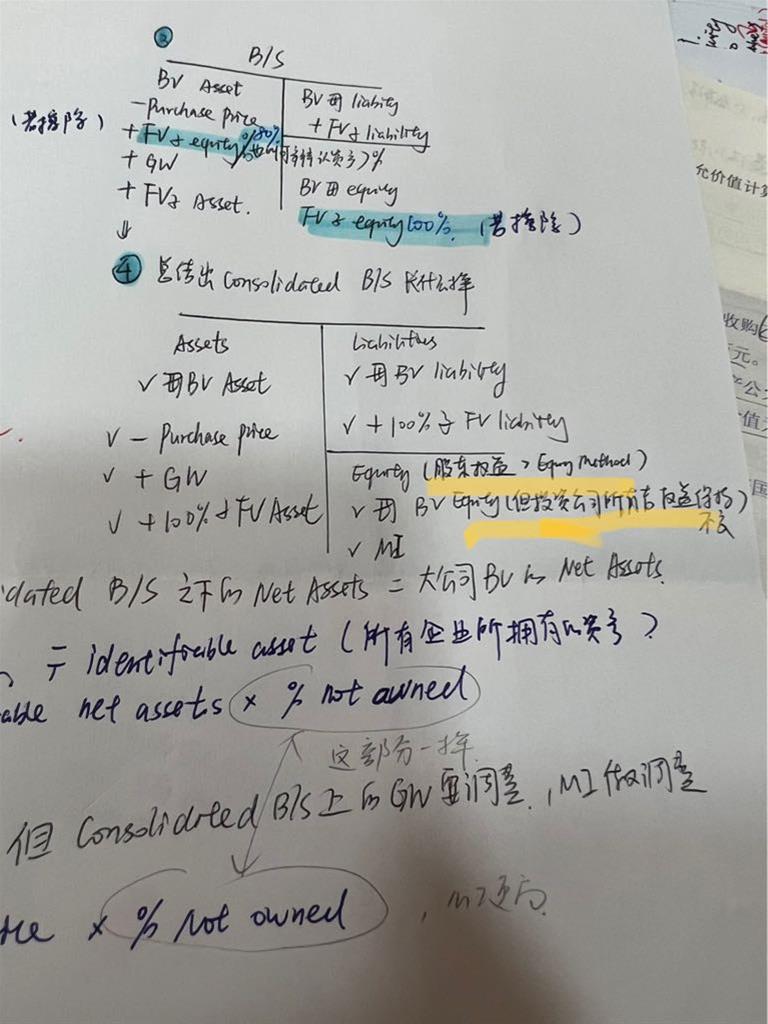 ②
B/S
BV Asset
BV母liability
(若控除)
-Purchase price
+ FV子liability
+ FV子equity 80%
可辨认资产)%
+ GW
BV母equity
+ FV子 Asset.
FV子 equity 100%. (若控除)
↓
④ 总结出 Consolidated B/S 长什么样
Assets
Liabilities
✓ 母BV Asset
✓ 母BV liability
✓ - Purchase price
✓ +100%子 FV liability
✓ + GW
Equity (股东权益 > Equity Method)
✓ +100%子FV Asset
✓ 母 BV Equity (但投资公司所有者权益保持不变)
✓ MI
idated B/S 之下的 Net Assets = 大公司BV的 Net Assets.
identifiable asset (所有企业所拥有的资产)
able net assets × % not owned
这部分一样
但 Consolidated B/S上的GW要调整, MI做调整
× % Not owned